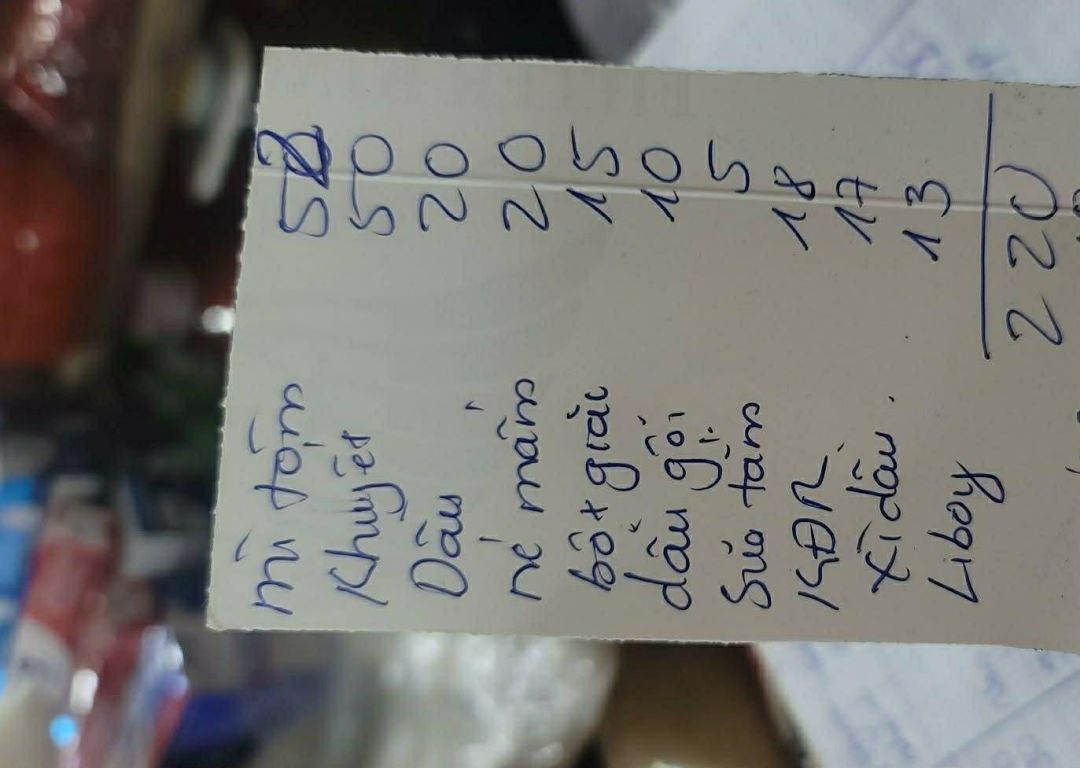 mì tôm 52
Khuyết 50
Dầu 20
né mắm 20
bột giặt 15
dầu gội 10
Sữa tắm 5
KĐR 18
Xì dầu. 17
Liboy 13
220